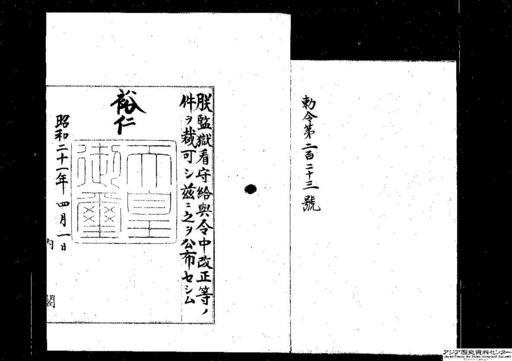 勅令第二百二十三號
朕監獄看守給與令中改正等ノ
件ヲ裁可シ茲ニ之ヲ公布セシム
裕仁
天皇
御璽
昭和二十一年四月一日
内閣
アジア歴史資料センター